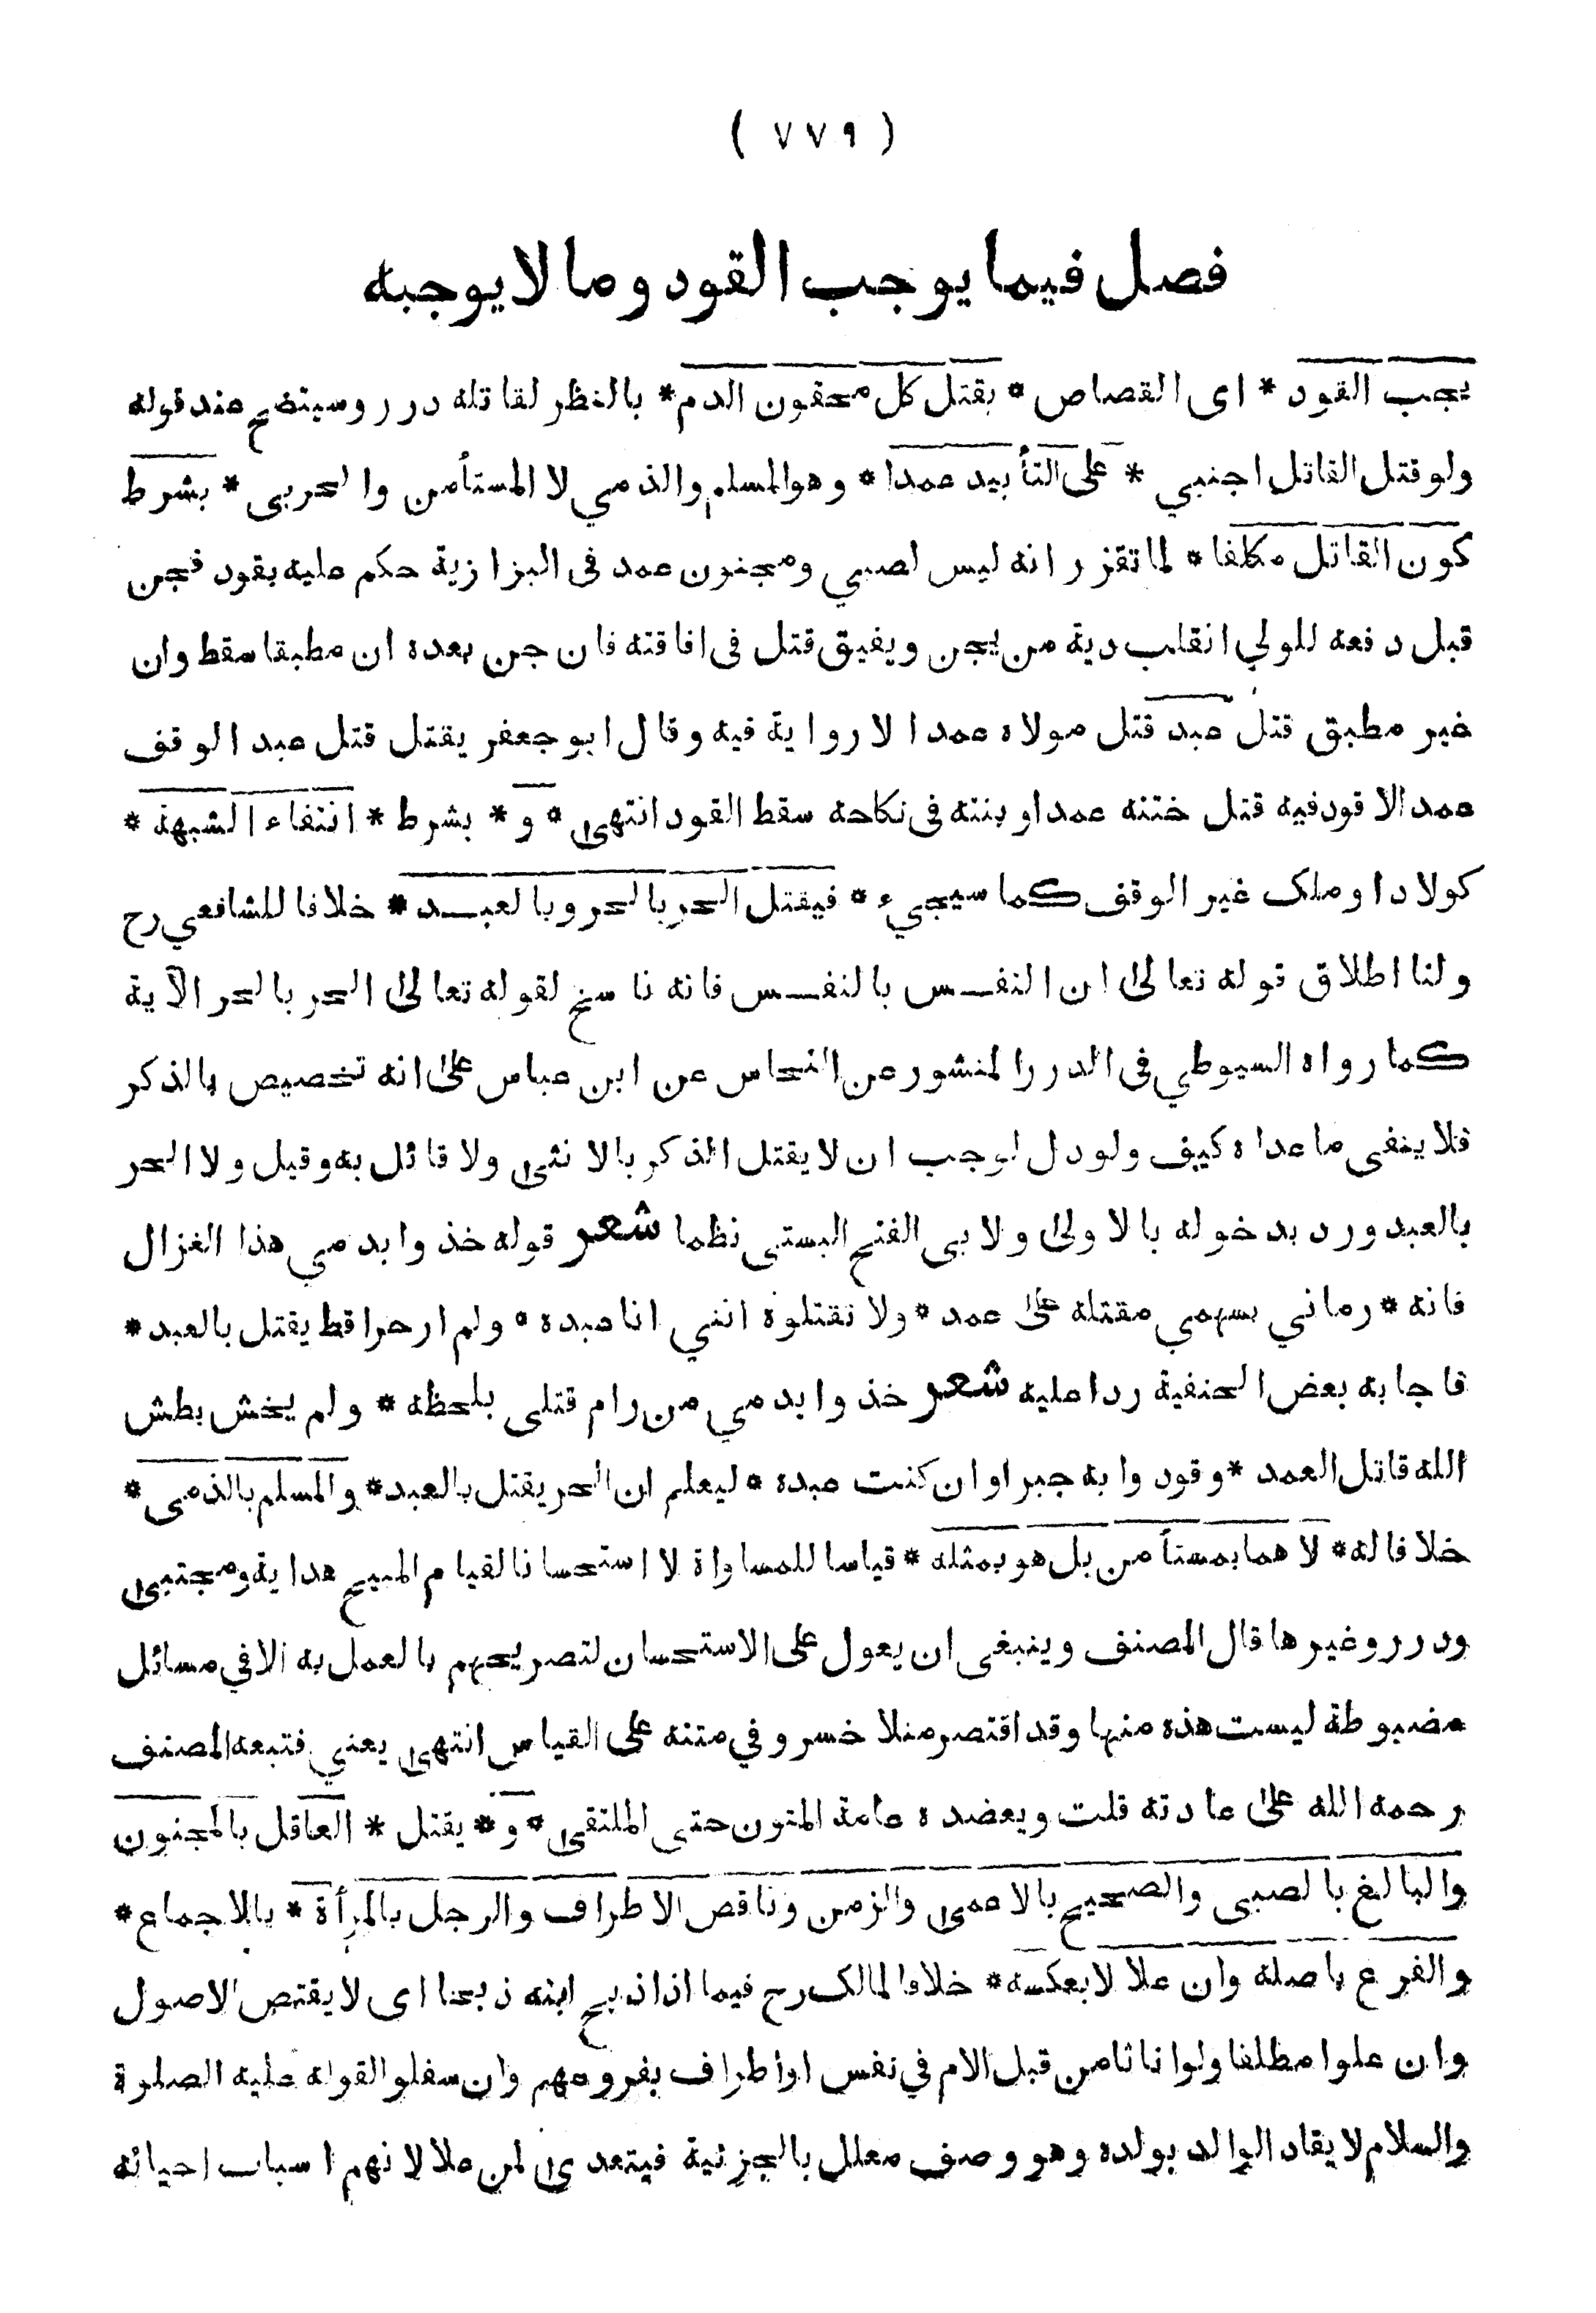 ( ٧٧٩ )
فصل فيما يوجب القود وما لا يوجبه
يجب القود * اى القصاص * بقتل كل محقون الدم * بالنظر لقاتله درر وسيتضح عند قوله
ولو قتل القاتل اجنبي * على التأبيد عمدا * وهو المسلم والذمي لا المستأمن والحربى * بشرط
كون القاتل مكلفا * لما تقرر انه ليس لصبي ومجنون عمد فى البزازية حكم عليه بقود فجن
قبل دفعه للولي انقلب دية من يجن ويفيق قتل فى افاقته فان جن بعده ان مطبقا سقط وان
غير مطبق قتل عبد قتل مولاه عمدا لا رواية فيه وقال ابو جعفر يقتل قتل عبد الوقف
عمدا لا قود فيه قتل ختنه عمدا وبنته فى نكاحه سقط القود انتهى * و * بشرط * انتفاء الشبهة *
كولاد او ملك غير الوقف كما سيجيء * فيقتل الحر بالحر وبالعبد * خلافا للشافعي رح
ولنا اطلاق قوله تعالى ان النفس بالنفس فانه ناسخ لقوله تعالى الحر بالحر الآية
كما رواه السيوطي فى الدرر المنشور عن النحاس عن ابن عباس على انه تخصيص بالذكر
فلا ينفى ما عداه كيف ولو دل لوجب ان لا يقتل الذكر بالانثى ولا قائل به وقيل ولا الحر
بالعبد ورد بدخوله بالاولى ولابى الفتح البستى نظما شعر قوله خذوا بدمي هذا الغزال
فانه * رماني بسهمي مقتله على عمد * ولا تقتلوه انني انا عبده * ولم ار حرا قط يقتل بالعبد *
فاجابه بعض الحنفية ردا عليه شعر خذوا بدمي من رام قتلى بلحظه * ولم يخش بطش
الله قاتل العمد * وقودوا به جبرا وان كنت عبده * ليعلم ان الحر يقتل بالعبد * والمسلم بالذمى *
خلافا له * لا هما بمستأمن بل هو بمثله * قياسا للمساواة لا استحسانا لقيام المبيح هداية ومجتبى
ودرر وغيرها قال المصنف وينبغى ان يعول على الاستحسان لتصريحهم بالعمل به الا في مسائل
مضبوطة ليست هذه منها وقد اقتصر منلا خسرو في متنه على القياس انتهى يعني فتبعه المصنف
رحمه الله على عادته قلت ويعضده عامة المتون حتى الملتقى * و * يقتل * العاقل بالمجنون
والبالغ بالصبى والصحيح بالاعمى والزمن وناقص الاطراف والرجل بالمرأة * بالاجماع *
والفرع باصله وان علا لا بعكسه * خلافا لمالك رح فيما اذا ذبح ابنه ذبحا اى لا يقتص الاصول
وان علوا مطلقا ولو اناثا من قبل الام في نفس او أطراف بفروعهم وان سفلوا لقوله عليه الصلوة
والسلام لا يقاد الوالد بولده وهو وصف معلل بالجزئية فيتعدى لمن علا لانهم اسباب احيائه